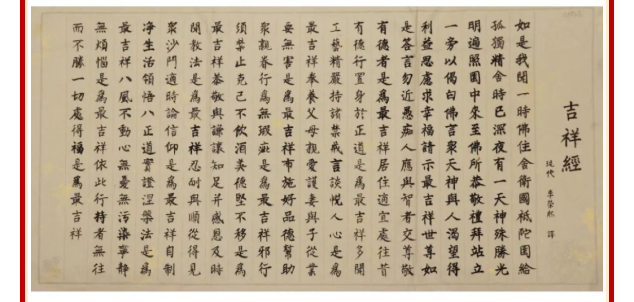 吉祥經
現代 李榮熙 譯
如是我聞一時佛住舍衛國祇陀園給
孤獨精舍時已深夜有一天神殊勝光
明遍照園中來至佛所恭敬禮拜站立
一旁以偈白佛言衆天神與人渴望得
利益思慮求幸福請示最吉祥世尊如
是答言勿近愚癡人應與智者交尊敬
有德者是爲最吉祥居住適宜處往昔
有德行置身於正道是爲最吉祥多聞
工藝精嚴持諸禁戒言談悅人心是爲
最吉祥奉養父母親愛護妻與子從業
要無害是爲最吉祥布施好品德幫助
衆親眷行爲無瑕疵是爲最吉祥邪行
須禁止克己不飲酒美德堅不移是爲
最吉祥恭敬與謙讓知足并感恩及時
聞教法是爲最吉祥忍耐與順從得見
衆沙門適時論信仰是爲最吉祥自制
淨生活領悟八正道實證涅槃法是爲
最吉祥八風不動心無憂無污染寧靜
無煩惱是爲最吉祥依此行持者無往
而不勝一切處得福是爲最吉祥